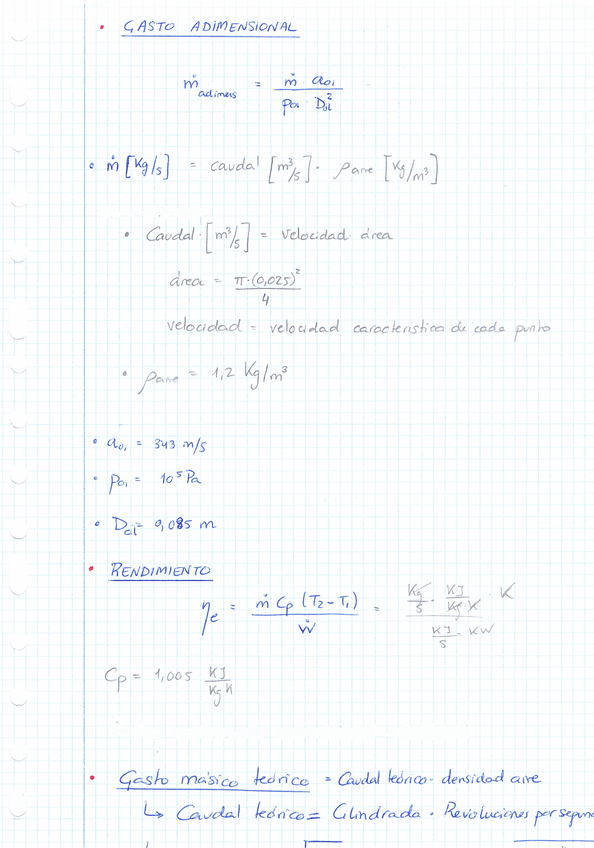 • GASTO ADIMENSIONAL
ṁ adimens = ṁ · a01 / p01 · Dcil²
• ṁ [Kg/s] = caudal [m³/s] · ρaire [Kg/m³]
• Caudal · [m³/s] = velocidad · área
área = π·(0,025)² / 4
velocidad = velocidad característica de cada punto
• ρaire = 1,2 Kg/m³
• a01 = 343 m/s
• p01 = 10⁵ Pa
• Dcil = 0,085 m
• RENDIMIENTO
ηe = ṁ Cp (T2 - T1) / Ẇ = Kg/S · KJ/Kg·K · K / KJ/S - KW
Cp = 1,005 KJ/Kg K
• Gasto másico teórico = Caudal teórico · densidad aire
↳ Caudal teórico = Cilindrada · Revoluciones por segun